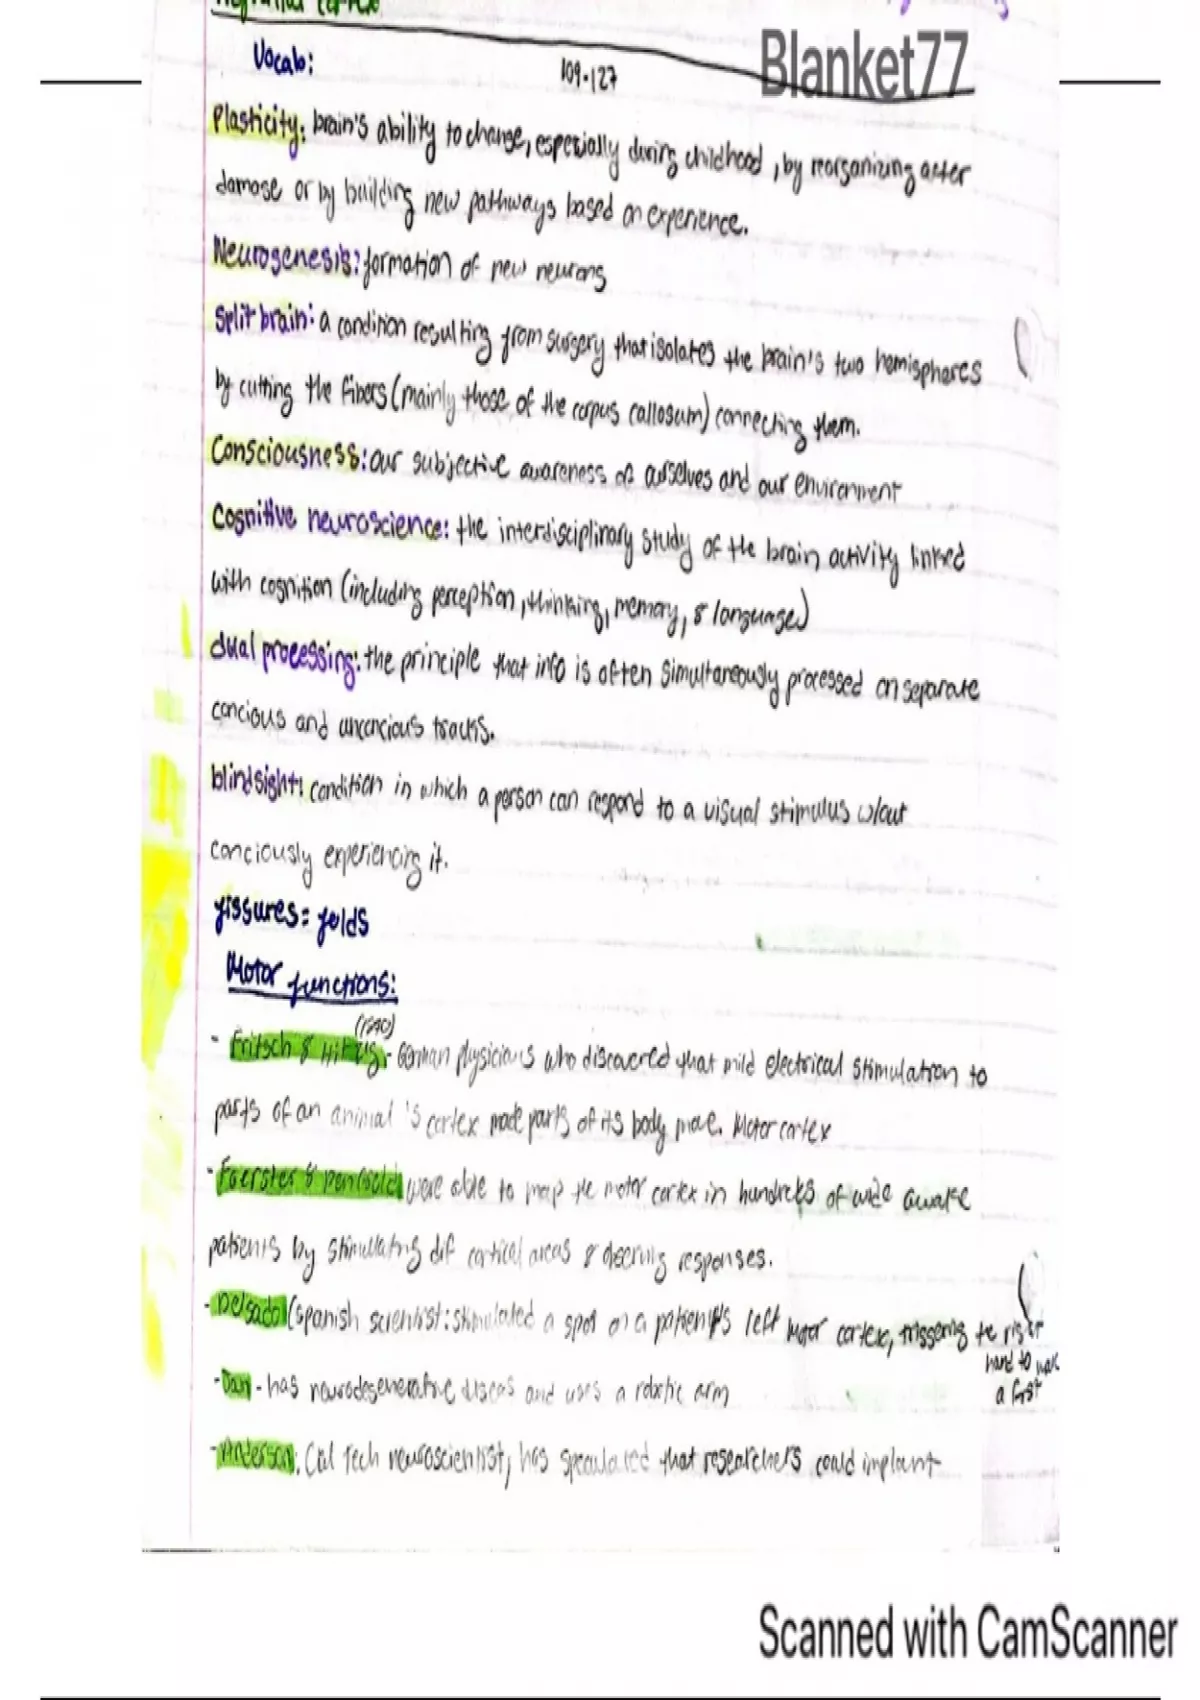 cortex
Blanket77
Vocab:
109-127
Plasticity: brain's ability to change, especially during childhood, by reorganizing after
damage or by building new pathways based on experience.
Neurogenesis: formation of new neurons
Split brain: a condition resulting from surgery that isolates the brain's two hemispheres
by cutting the fibers (mainly those of the corpus callosum) connecting them.
Consciousness: our subjective awareness of ourselves and our environment
Cognitive neuroscience: the interdisciplinary study of the brain activity linked
with cognition (including perception, thinking, memory, & language)
dual processing: the principle that info is often simultaneously processed on separate
concious and unconcious tracks.
blindsight: condition in which a person can respond to a visual stimulus w/out
conciously experiencing it.
fissures = folds
Motor functions:
- Fritsch & Hitzig - German physicians who discovered that mild electrical stimulation to
parts of an animal's cortex made parts of its body move. Motor cortex
- Foerster & penfield were able to map the motor cortex in hundreds of wide awake
patients by stimulating dif cortical areas & observing responses.
- Delgado (Spanish scientist: stimulated a spot on a patient's left motor cortex, triggering the right
hand to make
a fist
- Dan - has neurodegenerative diseas and uses a robotic arm
- Anderson: Cal Tech neuroscientist, has speculated that researchers could implant
Scanned with CamScanner